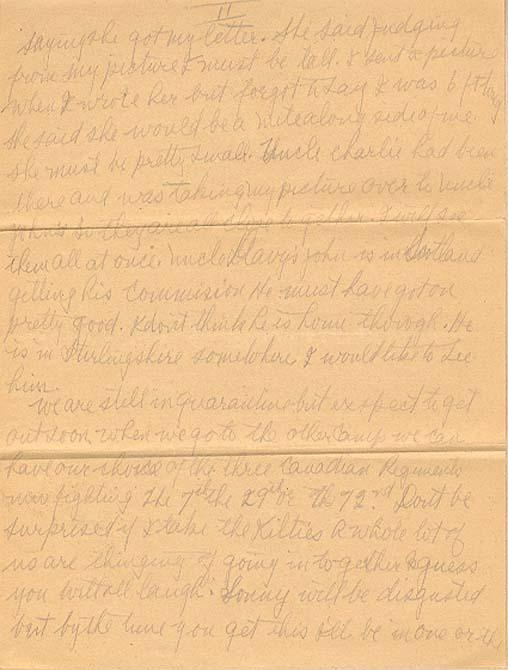 II
saying she got my letter. She said judging
from my picture I must be tall. I sent a picture
when I wrote her but forgot to say I was 6 ft
She said she would be a mite along side of me.
she must be pretty small. Uncle Charlie had been
there and was taking my picture over to Uncle
John's so they are all close together. I will see
them all at once. Uncle John is in Scotland
getting his commision He must have got on
pretty good. I dont think he is home through. He
is in Sturlingshire somewhere I would like to see
him.
We are still in Quarantine but expect to get
out soon. when we go to the other Camp we can
have our choice of the three Canadian Regiments
now fighting The 7th the 29th or the 72nd Dont be
surprised if I take the Kilties a whole lot of
us are thinging of going in together I guess
you will all laugh. Sonny will be disgusted
but by the time you get this I'll be in one or the